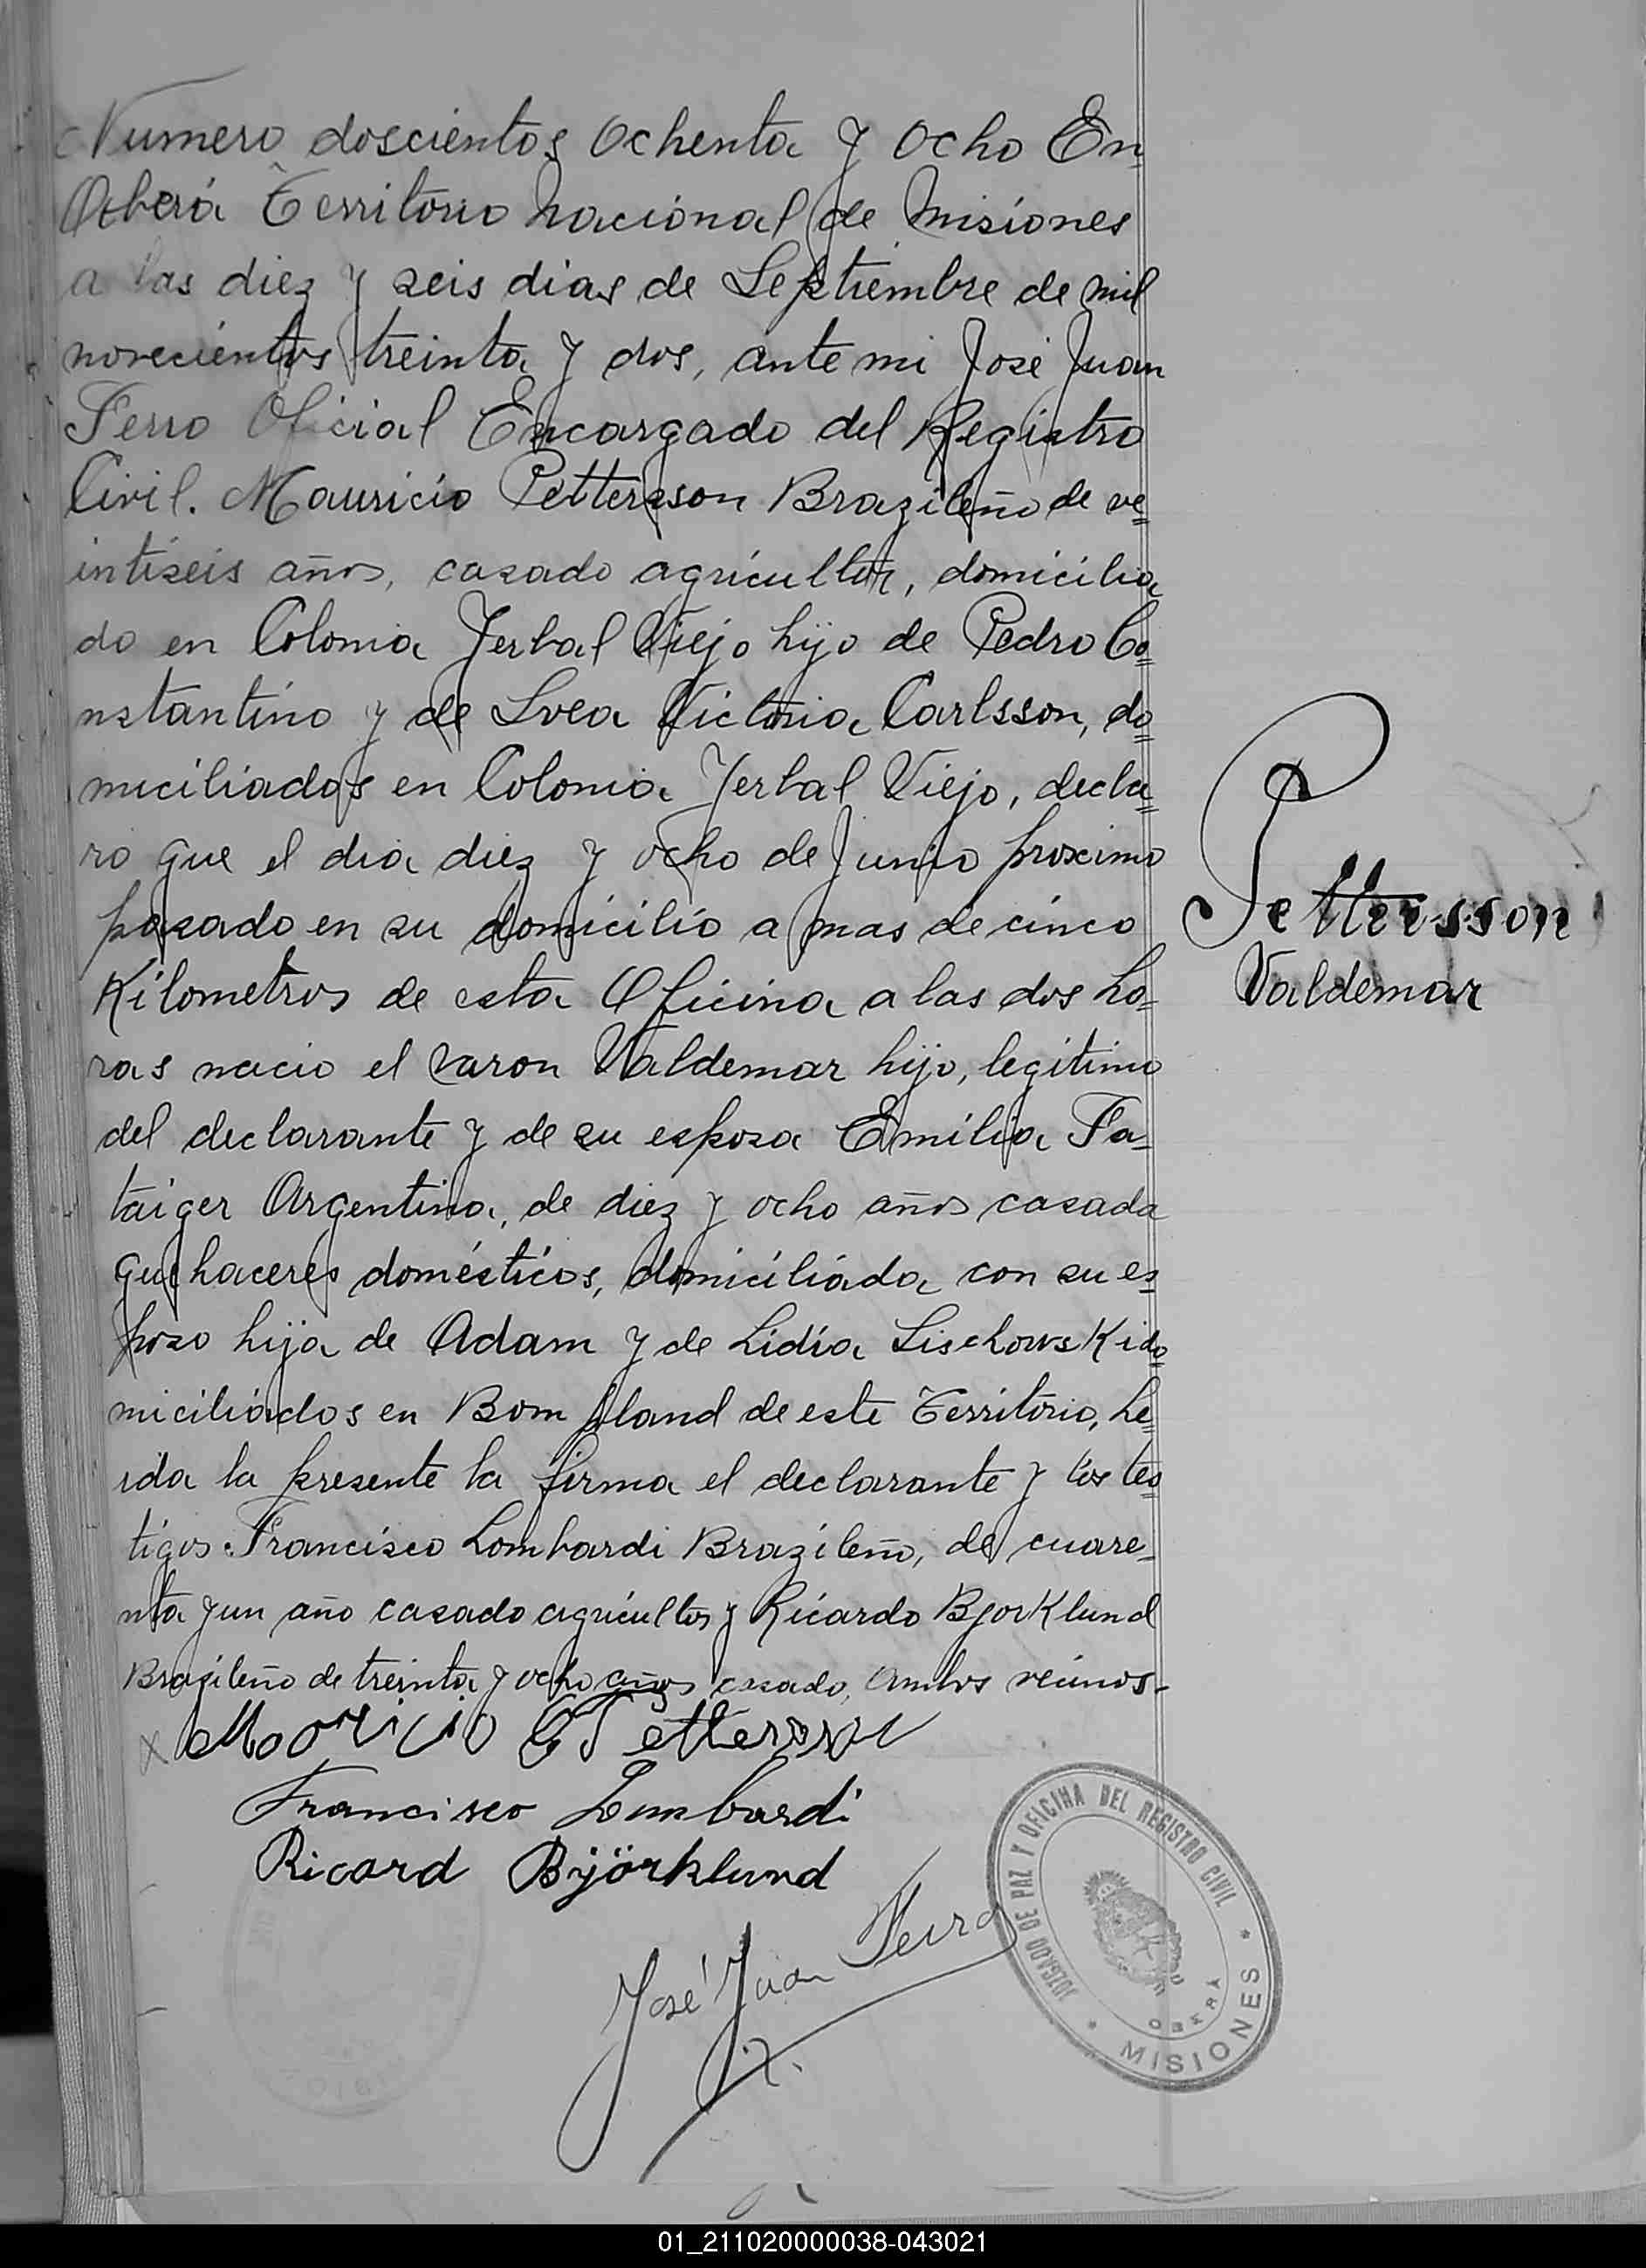 Numero doscientos Ochenta y Ocho En
Oberá Territorio Nacional de Misiones
a las diez y seis dias de Septiembre de mil
novecientos treinta y dos, ante mi José Juan
Ferro Oficial Encargado del Registro
Civil. Mauricio Pettersson Brazileño de ve=
intiseis años, casado agricultor, domicilia
do en Colonia Yerbal Viejo hijo de Pedro Co=
nstantino y de Svea Victoria Carlsson, do=
miciliados en Colonia Yerbal Viejo, decla=
ro que el dia diez y ocho de Junio proximo
pasado en su domicilio a mas de cinco
Kilometros de esta Oficina a las dos ho=
ras nacio el varon Valdemar hijo, legitimo
del declarante y de su esposa Emilia Fa=
taiger Argentina, de diez y ocho años casada
quehaceres domésticos, domiciliada con su es=
poso hija de Adam y de Lidia Lischowski do=
miciliados en Bompland de este Territorio, le=
ida la presente la firma el declarante y los tes
tigos: Francisco Lombardi Brazileño, de cuare=
nta y un año casado agricultor y Ricardo Bjorklund
Brazileño de treinta y ocho años casado, ambos vecinos.
x Mooricio Pettersson
Francisco Lombardi
Ricard Björklund
José Juan Ferro
Pettersson
Valdemar
JUZGADO DE PAZ Y OFICINA DEL REGISTRO CIVIL
OBERÁ
* MISIONES *
01_211020000038-043021